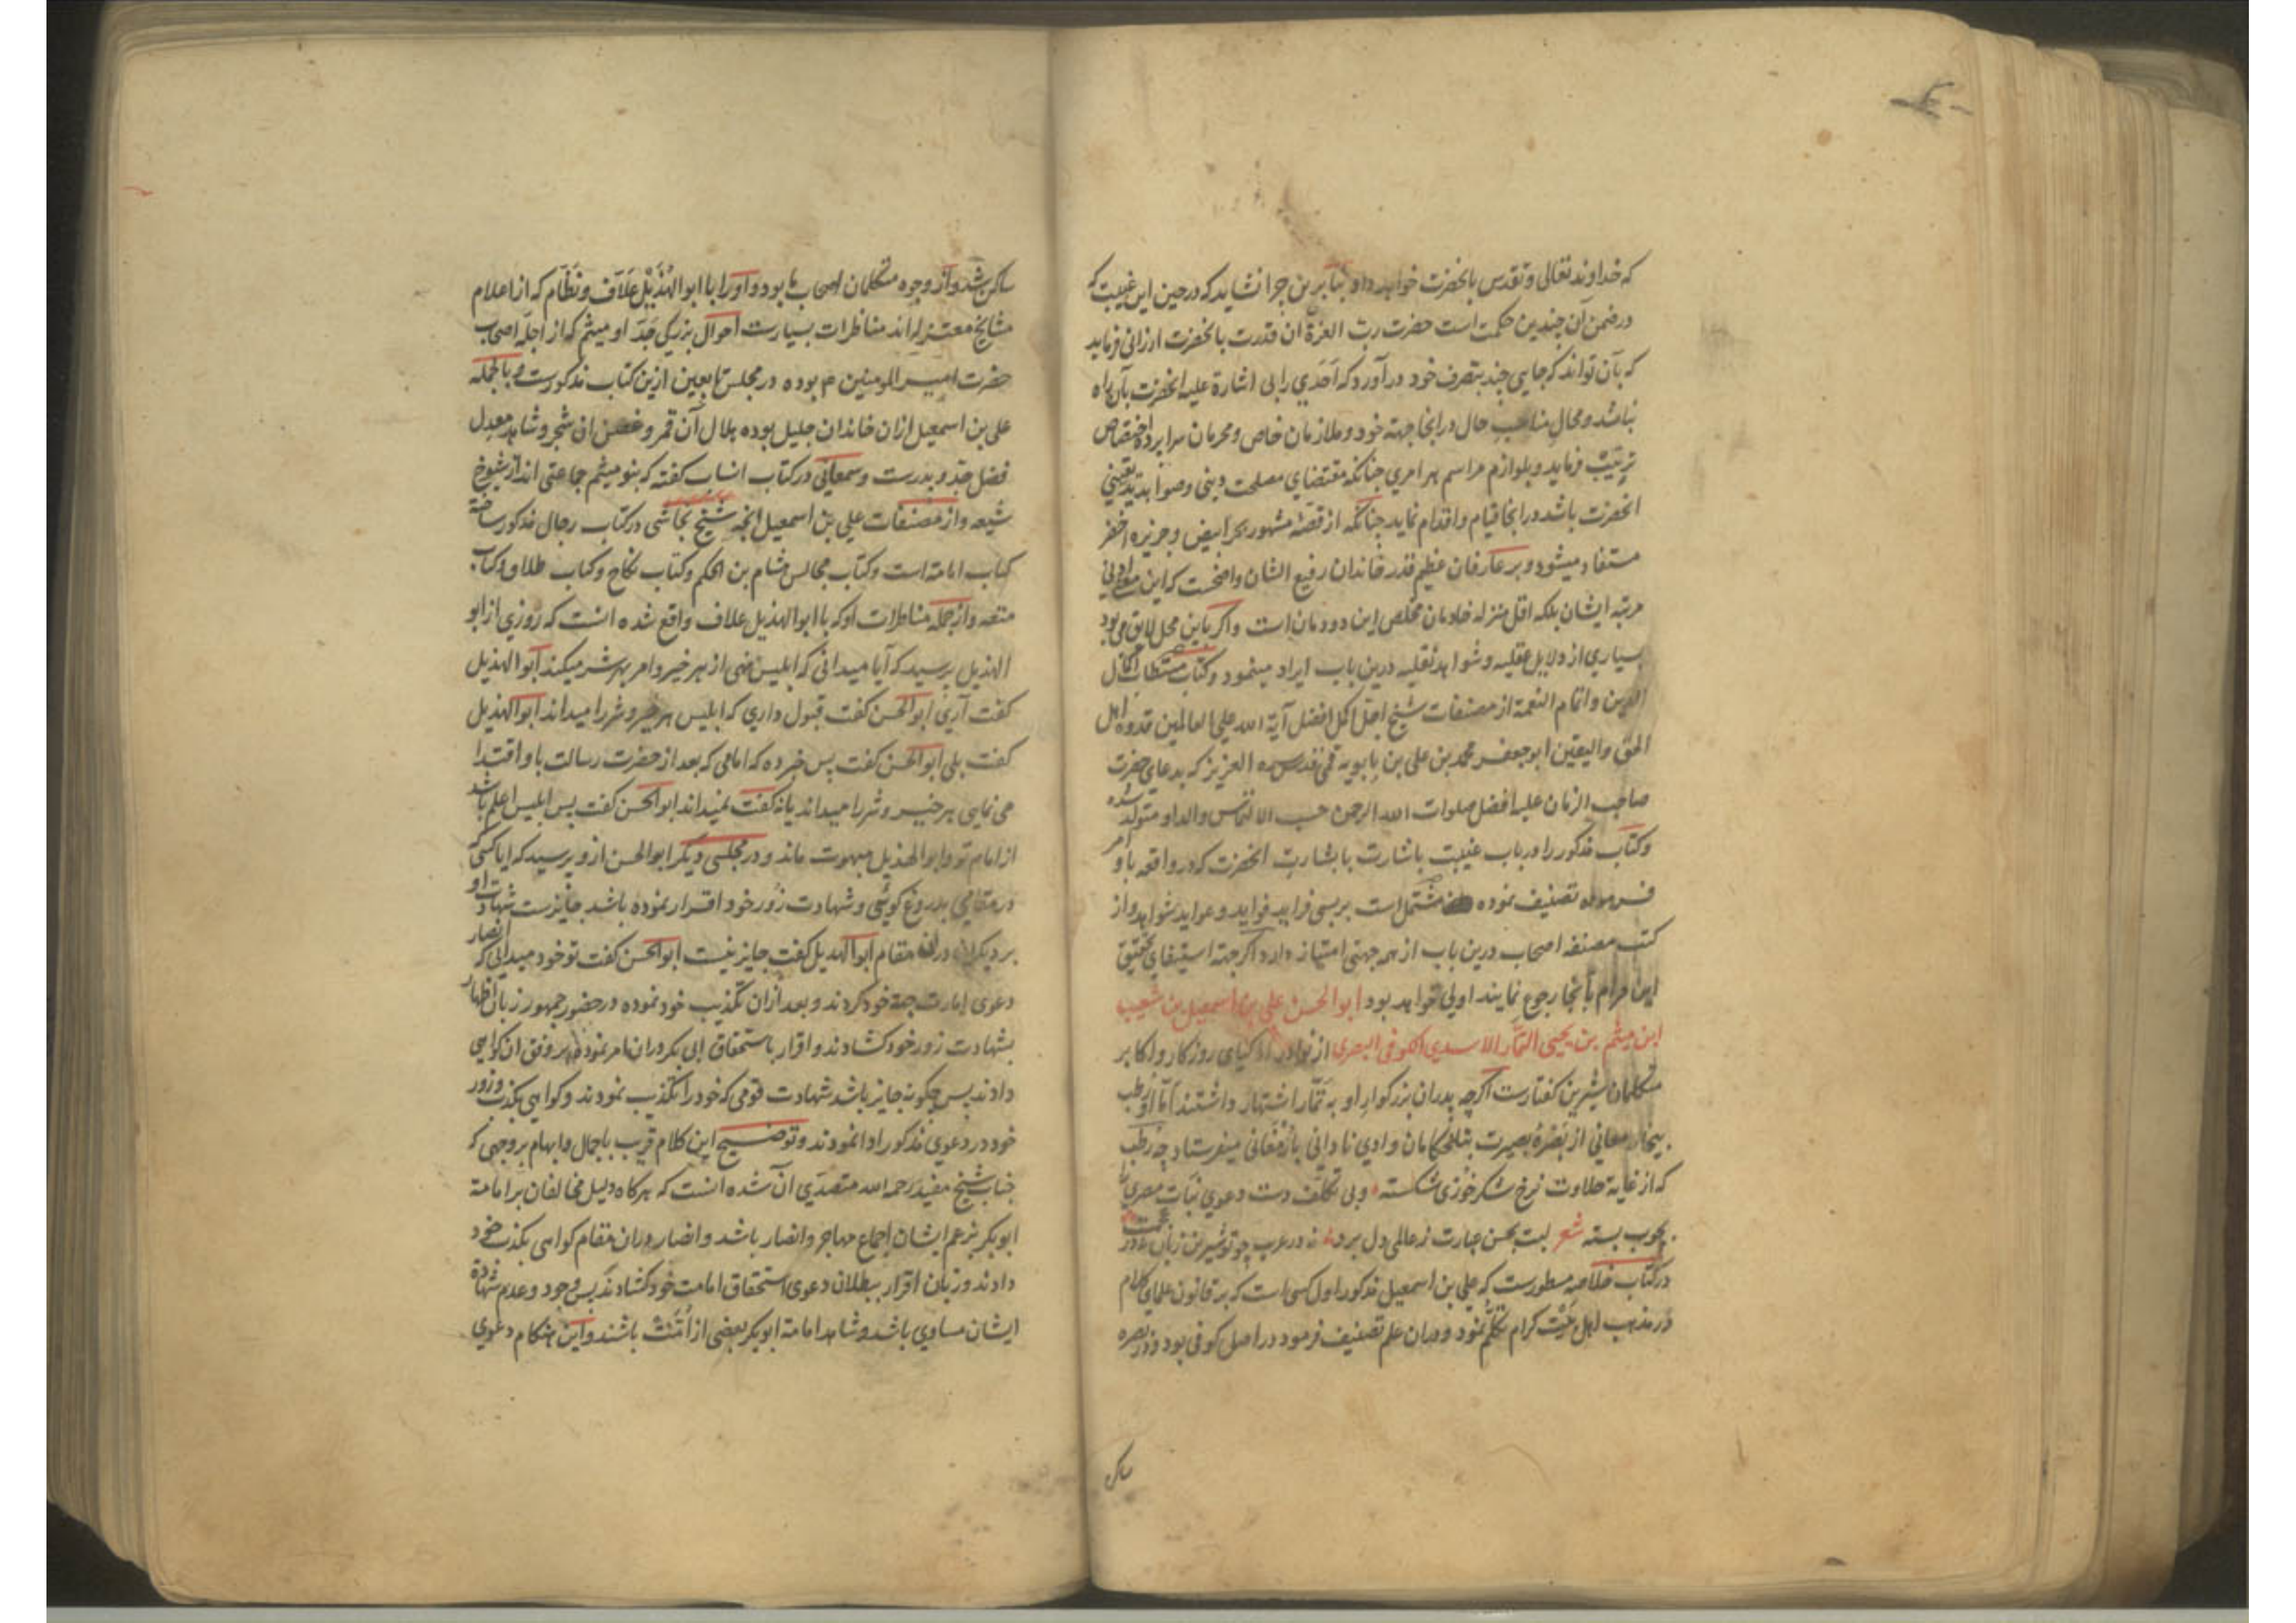 که خداوند تعالی و تقدس بانحضرت خواهد داد بنابرین چرا نشاید که در حین این غیبت که
در ضمن آن چندین حکمت است حضرت رب العزة آن قدرت بانحضرت ارزانی فرماید
که بآن تواند که جایی چند بتصرف خود درآورد که احدی را بی اشارة علیه انحضرت بآن راه
نباشد و محال مناسب حال درانجا جهته خود و ملازمان خاص و محرمان سرا پرده اختصاص
ترتیب فرماید و بلوازم مراسم هر امری چنانکه مقتضای مصلحت دینی و صوابدید یقینی
انحضرت باشد درانجا قیام و اقدام نماید چنانکه از قصهٔ مشهور بحر ابیض و جزیره اخضر
مستفاد میشود و بر عارفان عظیم قدر خاندان رفیع الشان واضحست که این معنی ادنی
مرتبه ایشان بلکه اقل منزله خادمان مخلص این دودمان است و اگر باین محل لایق می بود
بسیاری از دلایل عقلیه و شواهد نقلیه درین باب ایراد مینمود و کتاب مستطاب اکمال
الدین و اتمام النعمة از مصنفات شیخ اجل اکمل افضل آیة الله علی العالمین قدوه اهل
الحق والیقین ابو جعفر محمد بن علی بن بابویه قمی قدس سره العزیز که بدعای حضرت
صاحب الزمان علیه افضل صلوات الله الرحمن حسب الالتماس والد او متولد شده
و کتاب مذکور را در باب غیبت باشارت با بشارت انحضرت که در واقعه باو امر
فرموده تصنیف نموده مشتمل است بر بسی فراید فواید و عواید شواهد و از
کتب مصنفه اصحاب درین باب از همه جهتی امتیاز دارد اگر جهته استیفای تحقیق
این مرام بآنجا رجوع نمایند اولی خواهد بود ابو الحسن علی بن اسمعیل بن شعیب
ابن میثم بن یحیی التمار الاسدی الکوفی البصری از نوادر اذکیای روزکار و اکابر
متکلمان شیرین کفتارست اکرچه پدران بزرکوار او به تمار اشتهار داشتند اما او رطب
بیخار معانی از بصرهٔ بصیرت بتلخکامان وادی نادانی بارمغانی میفرستاد چه رطب
که از غایة حلاوت نرخ شکر خوزی شکسته و بی تکلف دست دعوی نبات مصری را
بچوب بسته شعر لبت بحسن عبارت ز عالمی دل برد نه در عرب چو تو شیرین زبان نه در عجمست
در کتاب خلاصه مسطورست که علی بن اسمعیل مذکور اول کسی است که بر قانون علمای کلام
در مذهب اهل بیت کرام تکلم نمود و دران علم تصنیف فرمود در اصل کوفی بود و در بصره
ساکن
ساکن شد و از وجوه متکلمان اصحاب ما بود و او را با ابو الهذیل علاف و نظام که از اعلام
مشایخ معتزله اند مناظرات بسیارست احوال بزرکی جد او میثم که از اجله اصحاب
حضرت امیر المومنین م بوده در مجلس تابعین ازین کتاب مذکورست و بالجمله
علی بن اسمعیل ازان خاندان جلیل بوده هلال آن قمر و غصن ان شجر و شاهد معدل
فضل جد و پدرست و سمعانی در کتاب انساب کفته که بنو میثم جماعتی اند از شیوخ
شیعه و از مصنفات علی بن اسمعیل انچه شیخ نجاشی در کتاب رجال مذکور ساخته
کتاب امامة است و کتاب مجالس هشام بن الحکم و کتاب نکاح و کتاب طلاق و کتاب
متعه و از جمله مناظرات او که با ابو الهذیل علاف واقع شده انست که روزی از ابو
الهذیل پرسید که آیا میدانی که ابلیس نهی از هر خیر و امر بهر شر میکند ابو الهذیل
کفت آری ابو الحسن کفت قبول داری که ابلیس هر خیر و شر را میداند ابو الهذیل
کفت بلی ابو الحسن کفت پس خبر ده که امامی که بعد از حضرت رسالت باو اقتدا
می نمایی هر خیر و شر را میداند یا نه کفت نمیداند ابو الحسن کفت پس ابلیس اعلم باشد
از امام تو و ابو الهذیل مبهوت ماند و در مجلسی دیگر ابو الحسن ازو پرسید که ایا کسی که
در مقامی بدروغ کوئی و شهادت زور خود اقرار نموده باشد جایزست شهادت او
بر دیکران دران مقام ابو الهذیل کفت جایز نیست ابو الحسن کفت تو خود میدانی که انصار
دعوی امارت جهة خود کردند و بعد ازان تکذیب خود نموده در حضور جمهور زبان اظهار
بشهادت زور خود کشادند و اقرار باستحقاق ابی بکر دران امر نموده بر وفق ان کواهی
دادند پس چکونه جایز باشد شهادت قومی که خود را تکذیب نمودند و کواهی بکذب و زور
خود در دعوی مذکور ادا نمودند و توضیح این کلام قریب باجمال و ابهام بر وجهی که
جناب شیخ مفید رحمه الله متصدی آن شده انست که هرکاه دلیل مخالفان بر امامة
ابو بکر بزعم ایشان اجماع مهاجر و انصار باشد و انصار دران مقام کواهی بکذب خود
دادند و زبان اقرار ببطلان دعوی استحقاق امامت خود کشادند پس وجود و عدم شهادة
ایشان مساوی باشد و شاهد امامة ابو بکر بعضی از امت باشند و این هنکام دعوی